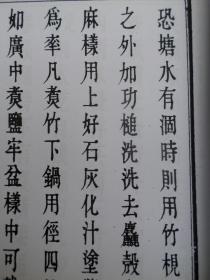 恐塘水有涸時則用竹梘
之外加功槌洗洗去麤殼
麻樣用上好石灰化汁塗
爲率凡煑竹下鍋用徑四
如廣中煑鹽牢盆樣中可